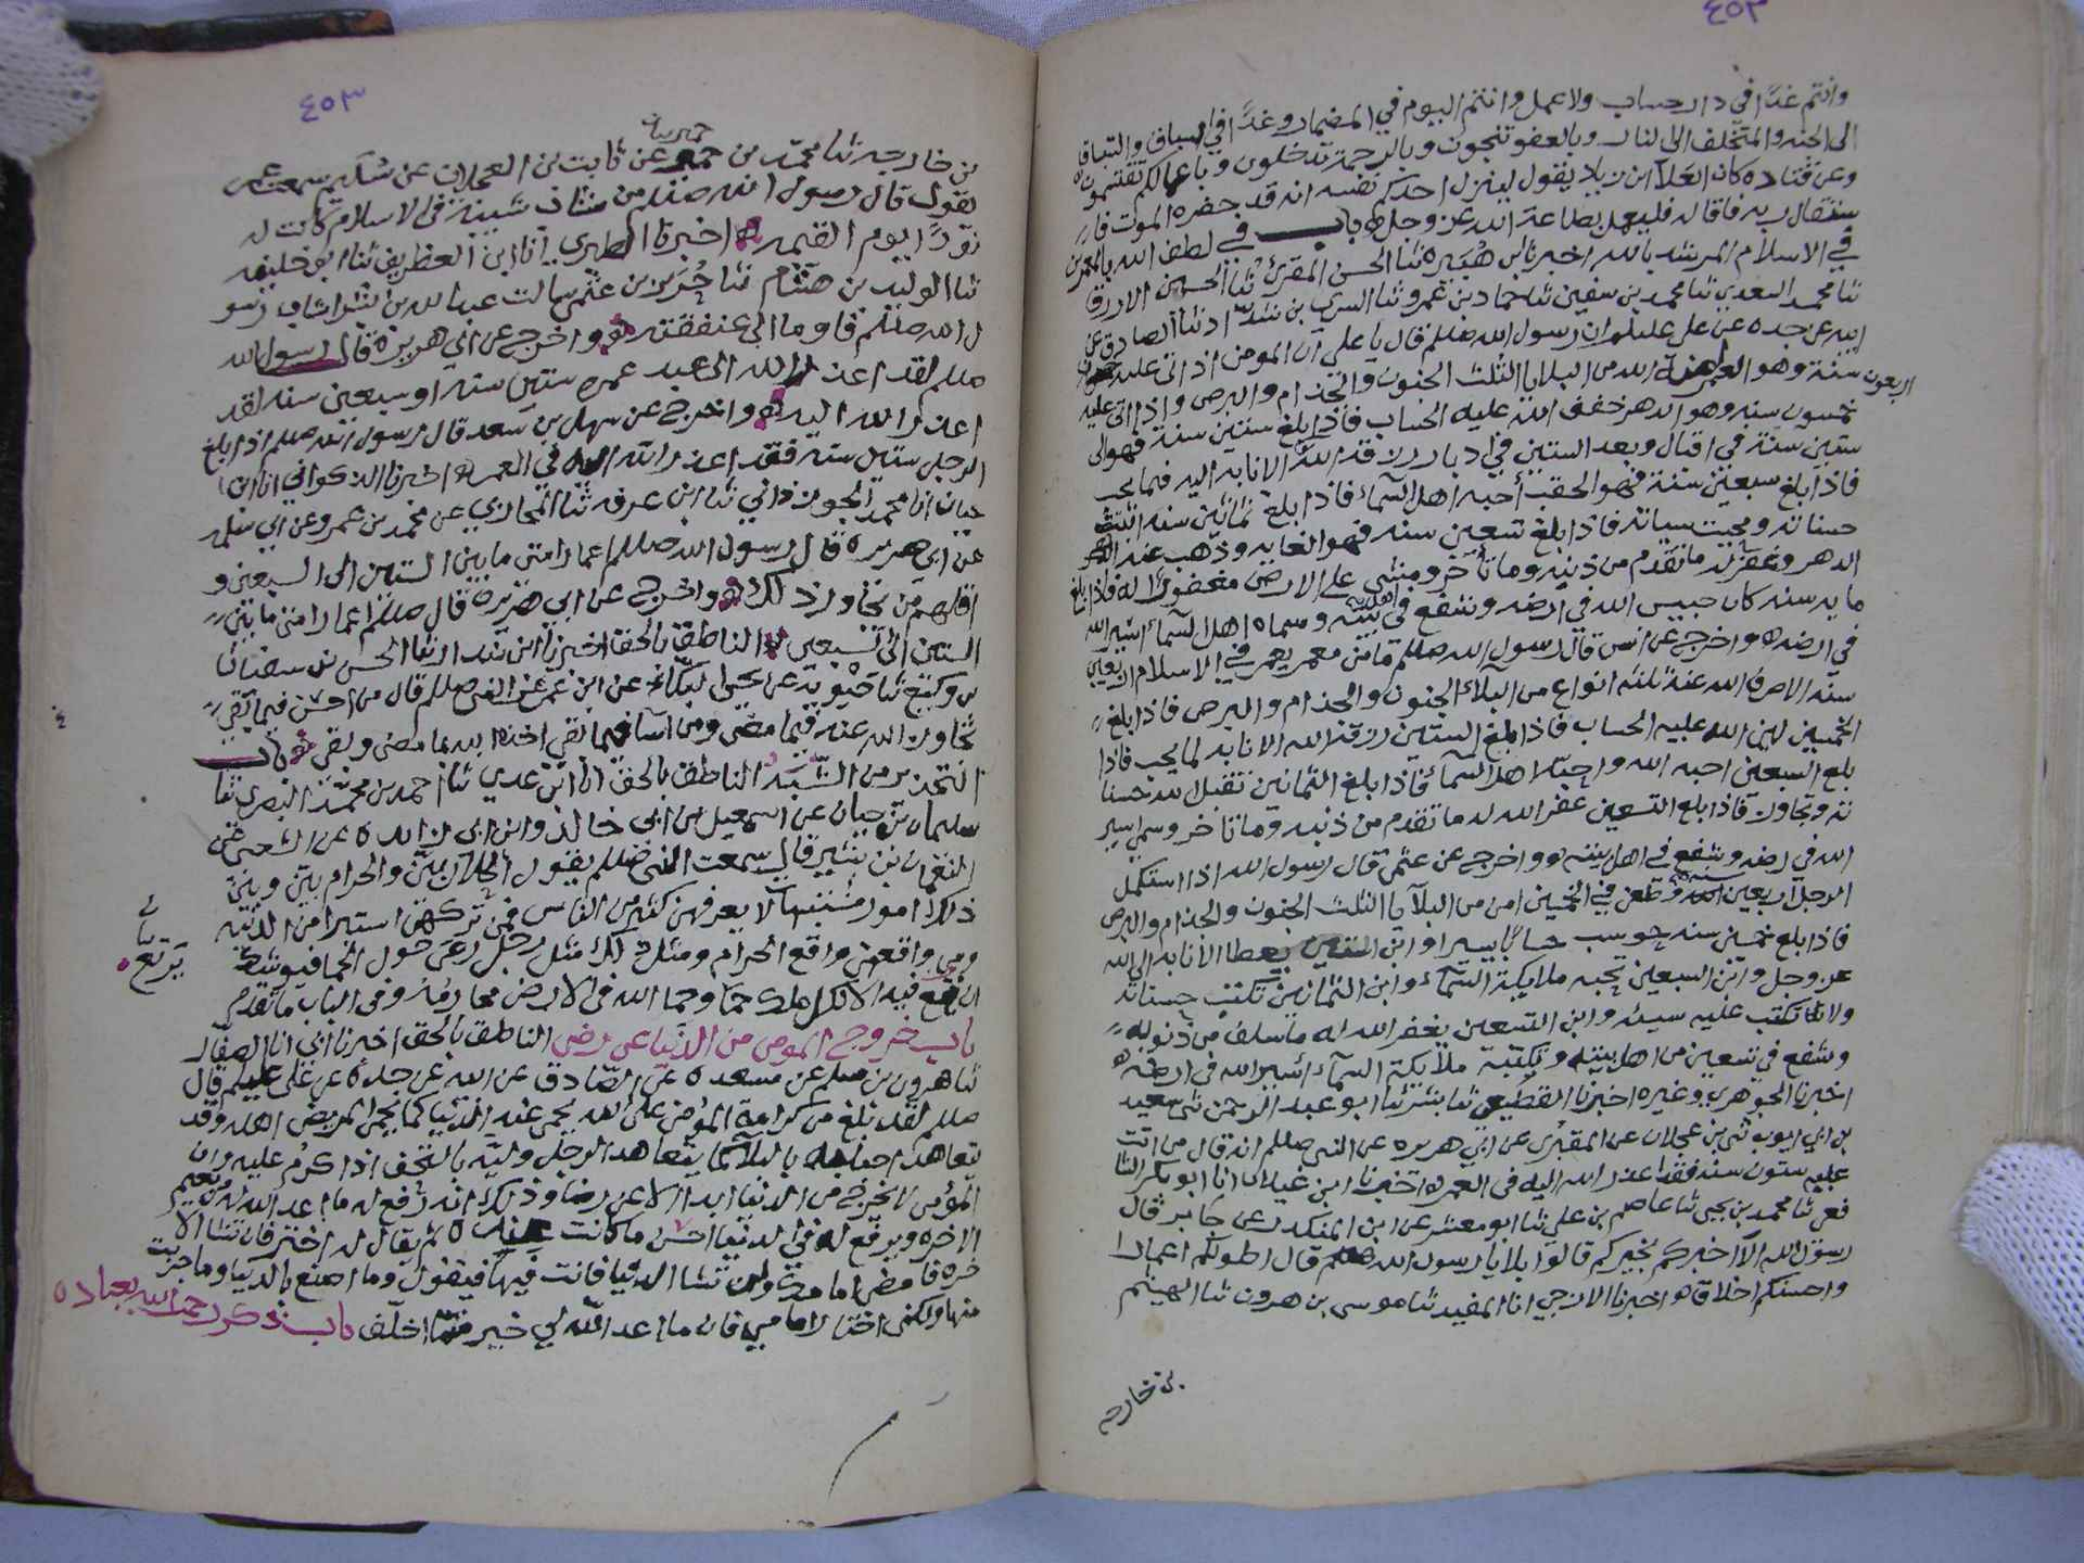 ٤٥٣
وانتم غدًا في دار حساب ولا عمل وانتم اليوم في المضمار وغدًا في السباق والسباقة
الى الجنه والمتخلف الى النار وبالعفو تنجون وبالرحمة تدخلون وباعمالكم تقتسمون
وعن قتاده كان العلا ابن زياد يقول لينزل احدكم نفسه انه قد حضره الموت فا
ستقال ربه فاقاله فليعمل بطاعة الله عز وجل باب في لطف الله بالمعمرين
في الاسلام المرشد بالله اخبرنا ابن هبيره ثنا الحسن المقري ثنا الحسين الازرق
ثنا محمد السعدي ثنا محمد بن سفين ثنا حماد بن عمرو ثنا السري بن شداد ثنا الصادق عن
ابيه عن جده عن علي عليلم ان رسول الله صللم قال يا علي ان المومن اذا اتى عليه
اربعون سنة وهو العمر امنه الله من البلايا الثلث الجنون والجذام والبرص واذا اتى عليه
خمسون سنه وهو الدهر خفف الله عليه الحساب فاذا بلغ ستين سنة فهو الى
ستين سنة في اقبال وبعد الستين في ادبار رزقه الله الانابه اليه فيما يحب
فاذا بلغ سبعين سنة فهو الحقب أحبه اهل السماء فاذا بلغ ثمانين سنه اثبتت
حسناته ومحيت سياته فاذا بلغ تسعين سنه فهو الغايه وذهب عنه
الدهر وغفر له ما تقدم من ذنبه وما تأخر ومشى على الارض مغفورًا له فاذا بلغ
مايه سنه كان حبيس الله في ارضه وشفع في اهل بيته وسماه اهل السماء اسير الله
في ارضه واخرج عن انس قال رسول الله صللم ما من معمر يعمر في الاسلام اربعين
سنة الا صرف الله عنه ثلثه انواع من البلاء الجنون والجذام والبرص فاذا بلغ
الخمسين لين الله عليه الحساب فاذا بلغ الستين رزقه الله الانابه لما يحب فاذا
بلغ السبعين احبه الله واحبه اهل السماء فاذا بلغ الثمانين تقبل الله حسنا
ته وتجاوز فاذا بلغ التسعين غفر الله له ما تقدم من ذنبه وما تاخر وسمي اسير
الله في ارضه وشفع في اهل بيته واخرج عن عثمن قال رسول الله اذا استكمل
الرجل اربعين سنه وطعن في الخمسين امن من البلايا الثلث الجنون والجذام والبرص
فاذا بلغ خمسين سنه حوسب حسابًا يسيرا وابن الستين يعطا الانابه الى الله
عز وجل وابن السبعين تحبه ملايكة السماء وابن الثمانين تكتب حسناته
ولا تكتب عليه سيئه وابن التسعين يغفر الله له ما سلف من ذنوبه
وشفع في سبعين من اهل بيته وتكتبه ملائكة السماء أسير الله في ارضه
اخبرنا الجوهري وغيره اخبرنا القطيعي ثنا بشر ثنا ابو عبد الرحمن ثنى سعيد
بن ابي ايوب ثنى بن عجلان عن المقبري عن ابي هريره عن النبي صللم انه قال من اتت
عليه ستون سنه فقد اعذر الله اليه في العمر اخبرنا ابن غيلان انا ابو بكر الشا
فعي ثنا محمد بن يحيى ثنا عاصم بن علي ثنا ابو معشر عن ابن المنكدر عن جابر قال
رسول الله الا اخبركم بخيركم قالوا بلا يا رسول الله صللم قال اطولكم اعمارا
واحسنكم اخلاقا اخبرنا الازجي انا المفيد ثنا موسى بن هرون ثنا الهيثم
بن خارجه
٤٥٣
بن خارجه ثنا محمد بن حمير عن ثابت بن العجلان عن سليم سمعت عمر
يقول قال رسول الله صللم من شاب شيبة في الاسلام كانت له
نورًا يوم القيمه اخبرنا الطبري انا ابن الغطريف ثنا ابو خليفه
ثنا الوليد بن هشام ثنا حريز بن عثمن سالت عبد الله بن بشر اشاب رسو
ل الله صللم فاوما الى عنفقته واخرج عن ابي هريرة قال رسول الله
صللم لقد اعذر الله الى عبد عمره ستين سنه او سبعين سنه لقد
اعذر الله اليه واخرج عن سهل بن سعد قال رسول الله صللم اذا بلغ
الرجل ستين سنه فقد اعذر الله اليه في العمر اخبرنا الذكواني انا ابن
حيان انا محمد الجوزذاني ثنا ابن عرفه ثنا المحاربي عن محمد بن عمرو عن ابي سلمه
عن ابي هريره قال رسول الله صللم اعمار امتي ما بين الستين الى السبعين و
اقلهم من تجاوز ذلك واخرج عن ابي هريره قال صللم اعمار امتي ما بين
الستين الى سبعين الناطق بالحق اخبرنا ابن بندار ثنا الحسن بن سفيان
بن وكيع ثنا حيويه عن يحيى البكاء عن ابن عمر عن النبي صللم قال من احسن فيما بقي
تجاوز الله عنه فيما مضى ومن اسآ فيما بقي اخذه الله بما مضى وبقي باب
التحذير من الشبه الناطق بالحق انا ابن عدي ثنا احمد بن محمد البصري ثنا
سليمان بن حيان عن اسمعيل بن ابي خالد وابن ابي زايده عن الشعبي عن
النعمان بن بشير قال سمعت النبي صللم يقول الحلال بين والحرام بين وبين
ذلك امور مشتبهات لا يعرفهن كثير من الناس فمن تركهن استبرا من الدنيه
ومن واقعهن واقع الحرام ومثل ذلك مثل رجل رعى حول الحما فيوشك
يرتع
ان يقع فيه الا لكل ملك حما وحما الله في الارض محارمه وفي الباب ما تقدم
باب خروج المومن من الدنيا عن رضى الناطق بالحق اخبرنا ابي انا الصفار
ثنا هرون بن مسلم عن مسعده عن الصادق عن ابيه عن جده عن علي عليلم قال
صللم لقد بلغ من كرامة المؤمن على الله يحمى عنه الدنيا كما يحمى المريض اهله وقد
يتعاهد احبابه بالبلآ كما يتعاهد الرجل وليه بالتحف اذا كرم عليه وان
المؤمن لا يخرج من الدنيا ابدا الا عن رضا وذلك انه رفع له ما اعد الله له من نعيم
الاخره ويرفع له في الدنيا احسن ما كانت ثم يقال له اختر فان تشا الا
خره فامض امامك وان تشا الدنيا فانت فيها فيقول وما اصنع بالدنيا وما جربت
منها ولكني اختار امامي فان ما اعد الله لي خير مما اخلف باب ذكر رحمة الله بعباده